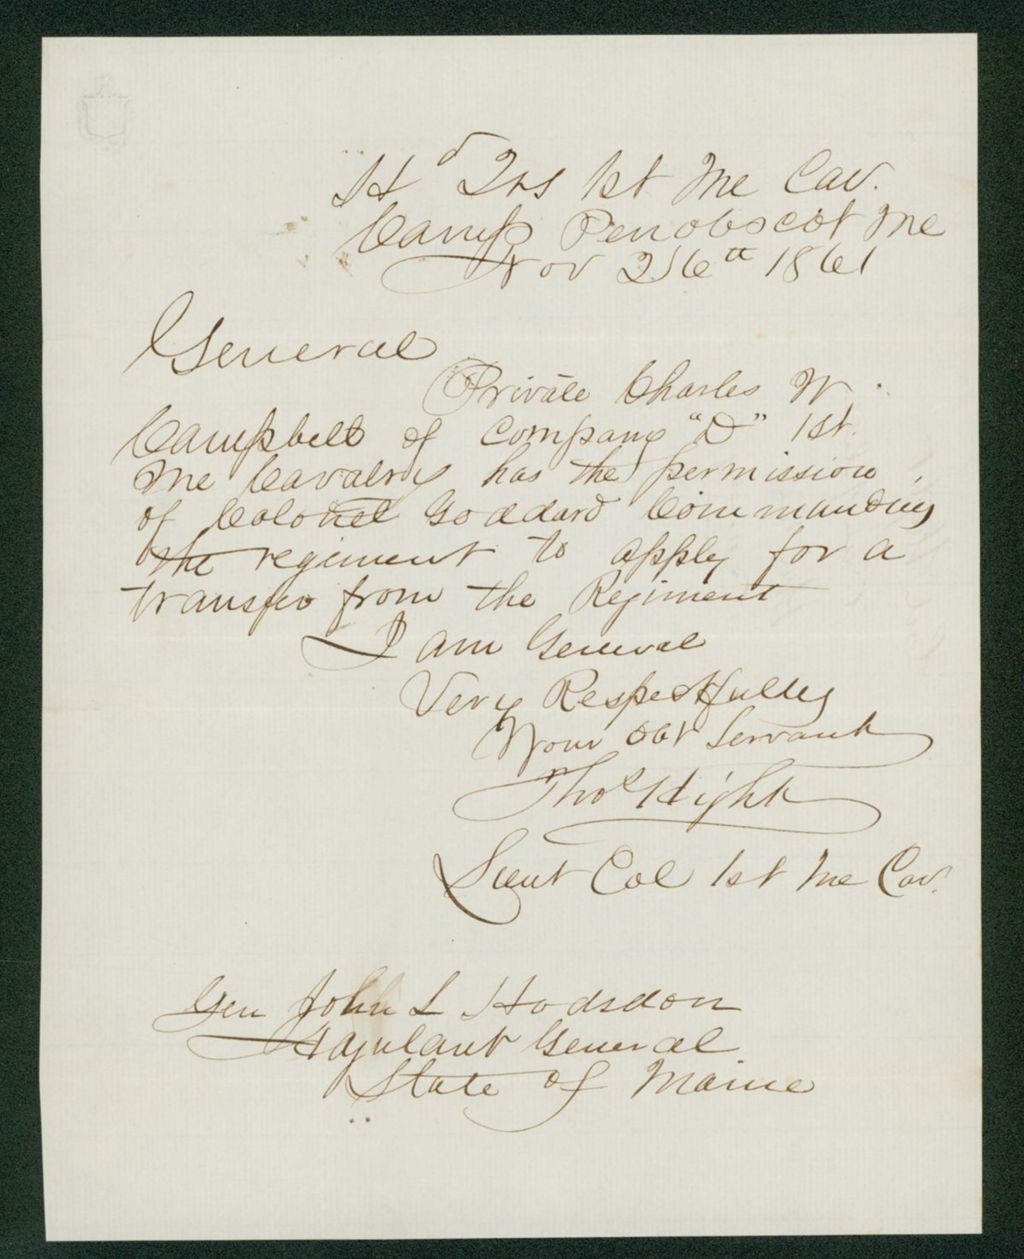 Hd Qrs 1st Me Cav.
Camp Penobscot Me
Nov 26th 1861
General
Private Charles W.
Campbell of Company "D" 1st.
Me Cavalry has the permission
of Colonel Goddard Commanding
the regiment to apply for a
transfer from the Regiment
I am General
Very Respectfully
Your Obt Servant
Thos Hight
Lieut Col 1st Me Cav.
Gen John L Hodsdon
Adjutant General
State of Maine